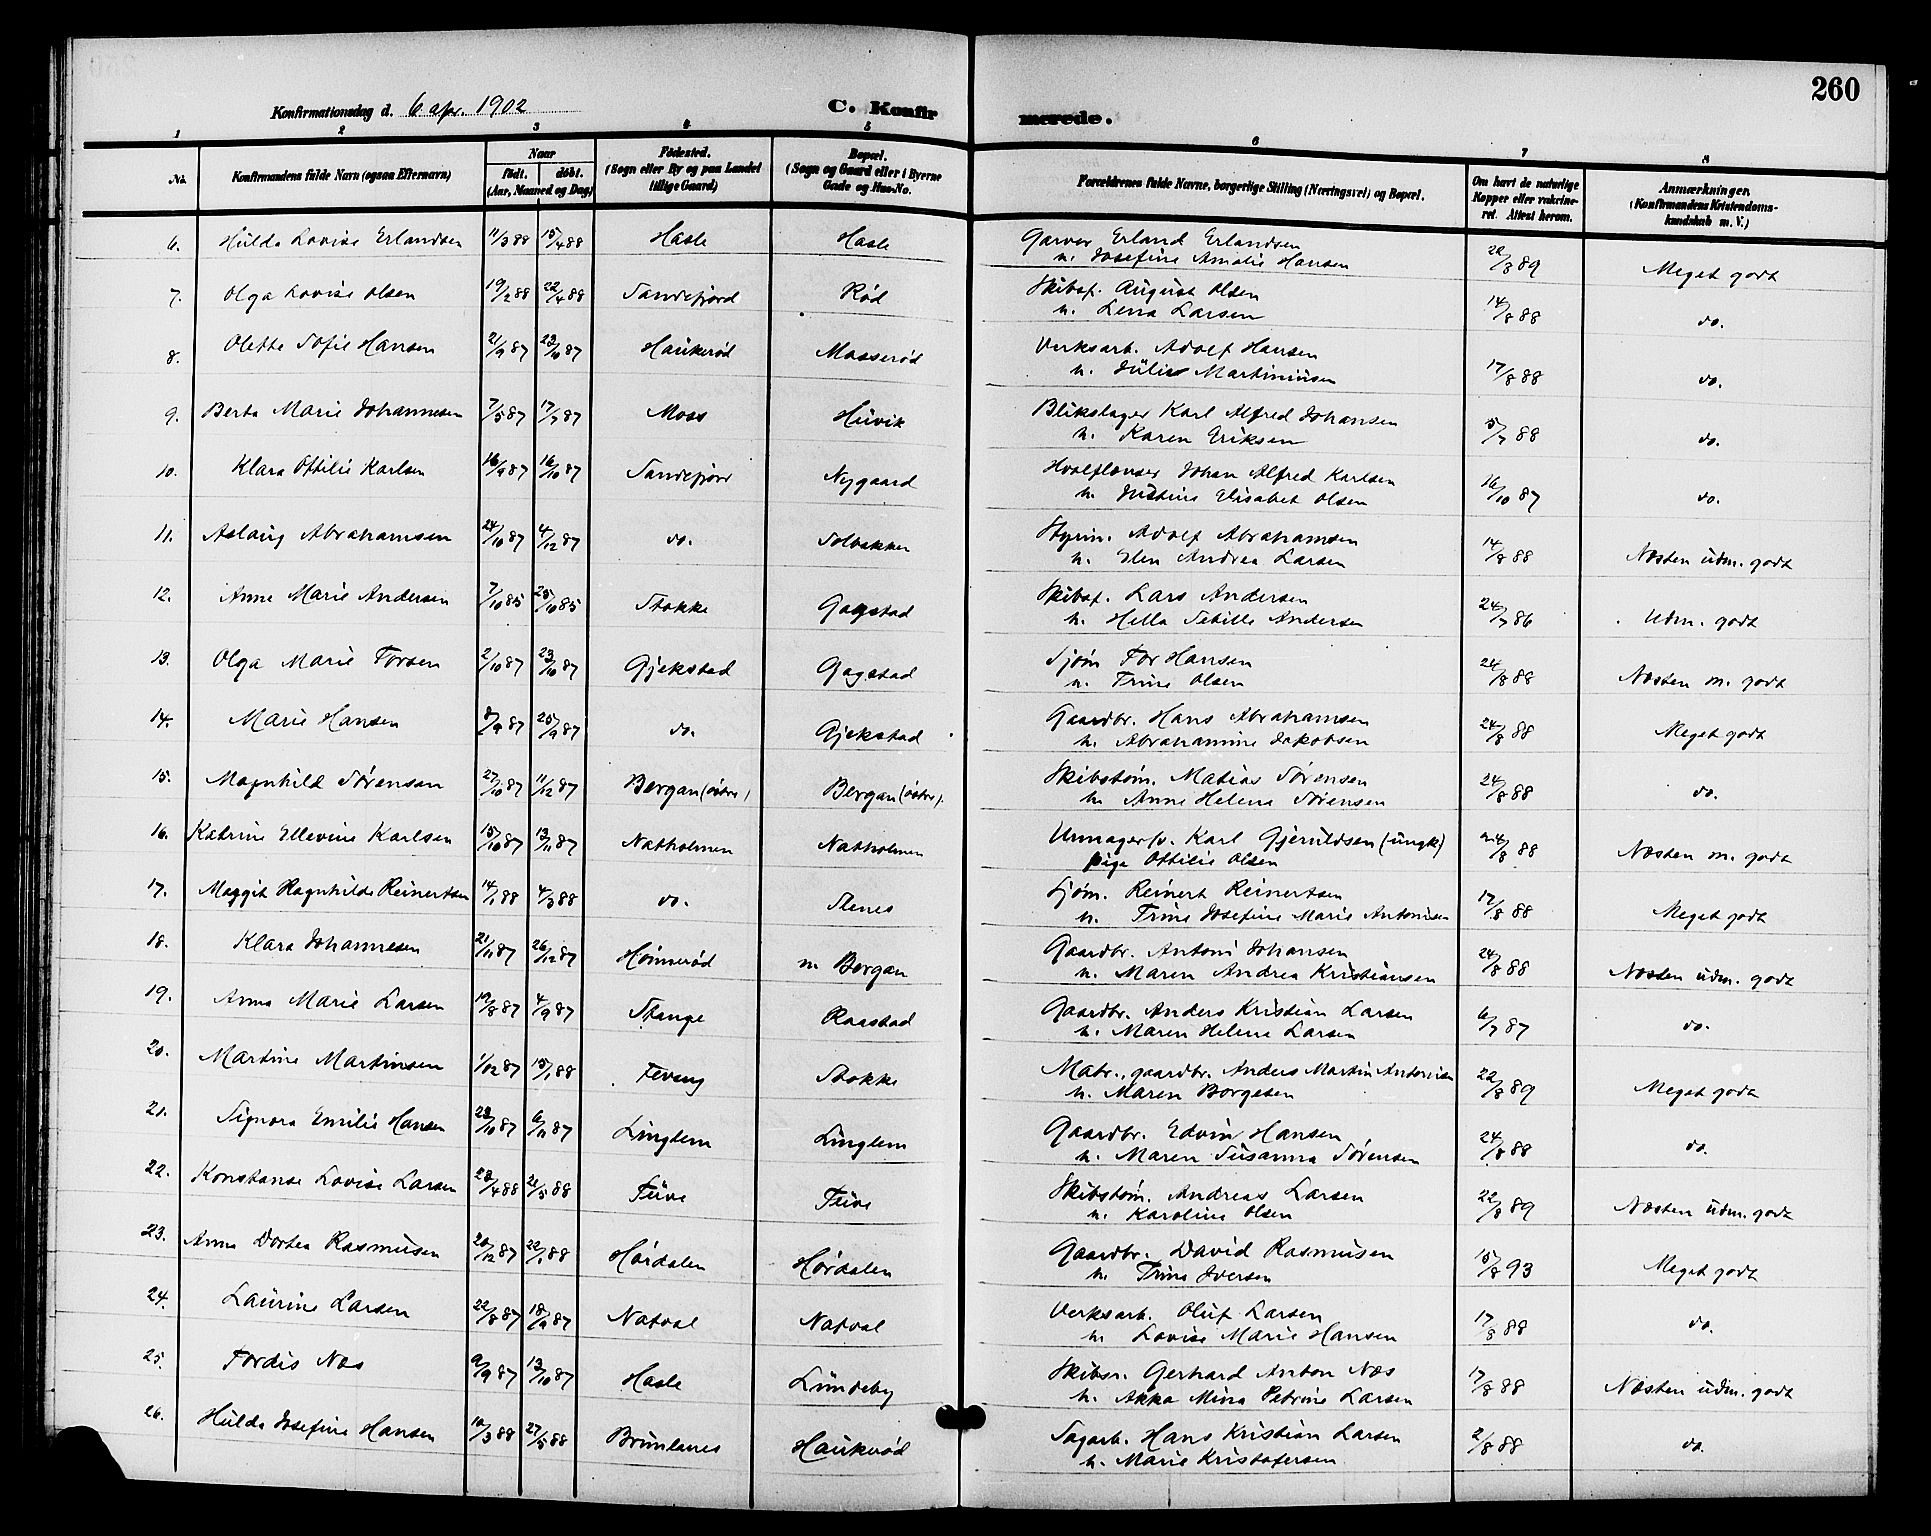 260
Konfirmationsdag d. 6 apr. 1902
C. Konfirmerede.
1 2 3 4 5 6 7 8
No. Konfirmandens fulde Navn (ogsaa Efternavn) Naar født. døbt. (Aar, Maaned og Dag) Fødested. (Sogn eller By og paa Landet tillige Gaard) Bopæl. (Sogn og Gaard eller i Byerne Gade og Hus-No. Forældrenes fulde Navne, borgerlige Stilling (Næringsvei) og Bopæl. Om havt de naturlige Kopper eller vakcineret. Attest herom. Anmærkninger. (Konfirmandens Kristendomskundskab m. V.)
6. Hulda Lovise Erlandsen 11/3 88 15/4 88 Hasle Hasle Garver Erland Erlandsen
u. Josefine Amalie Hansen /8 89 Meget godt
7. Olga Lovise Olsen 19/2 88 22/4 88 Sandefjord Rød Skibsf. August Olsen
u. Lena Larsen 14/8 88 do.
8. Olette Sofie Hansen 21/9 87 23/10 87 Haukerød Mosserød Verksarb. Adolf Hansen
u. Julie Martiniusen 17/8 88 do.
9. Berta Marie Johannesen 7/5 87 17/7 87 Moss Huvik Blikslager Karl Alfred Johansen
u. Karen Eriksen 5/7 88 do.
10. Klara Ottilie Karlsen 16/9 87 16/10 87 Sandefjord Nygaard Hvalflenser Johan Alfred Karlsen
u. Justine Elisabet Olsen 16/10 87 do.
11. Aslaug Abrahamsen 24/10 87 4/12 87 do. Solbakken Styrm. Adolf Abrahamsen
u. Elen Andrea Larsen 14/8 88 Næsten udm. godt
12. Anne Marie Andersen 7/10 85 25/10 85 Stokke Gogstad Skibsf. Lars Andersen
u. Hella Sebille Andersen 24/7 86 Udm. godt
13. Olga Marie Torsen 2/10 87 23/10 87 Gjekstad Gogstad Sjøm Tor Hansen
u. Trine Olsen 24/8 88 Næsten m. godt
14. Marie Hansen 8/9 87 25/9 87 do. Gjekstad Gaardbr. Hans Abrahamsen
u. Abrahamine Jakobsen 24/8 88 Meget godt
15. Magnhild Sørensen 27/10 87 11/12 87 Bergan (østre) Bergan (østre). Skibstøm. Matias Sørensen
u. Anne Helene Sørensen 24/8 88 do.
16. Katrine Ellevine Karlsen 15/10 87 13/11 87 Natholmen Natholmen Urmager fv. Karl Gjeruldsen (ungk)
pige Ottilie Olsen 24/8 88 Næsten m. godt
17. Maggit Ragnhilda Reinertsen 14/1 88 4/3 88 do. Stenes Sjøm. Reinert Reinertsen
u. Trine Josefine Marie Antonisen 17/8 88 Meget godt
18. Klara Johannesen 21/11 87 26/12 87 Hønnerød m Bergan Gaardbr. Antoni Johansen
u. Maren Andrea Kristiansen 24/8 88 Næsten udm. godt
19. Anna Marie Larsen 19/8 87 4/9 87 Stange Raastad Gaardbr. Anders Kristian Larsen
u. Maren Helene Larsen 6/7 87 do.
20. Martine Martinsen 1/12 87 15/1 88 Feveng Stokke Matr., gaardbr. Anders Martin Antonisen
u. Maren Borgesen 22/8 89 Meget godt
21. Signora Emilie Hansen 23/10 87 6/11 87 Linglem Linglem Gaardbr. Edvin Hansen
u. Maren Susanna Sørensen 24/8 88 do.
22. Konstanse Lovise Larsen 23/4 88 21/5 88 Tuve Tuve Skibstøm. Andreas Larsen
u. Karoline Olsen 22/8 89 Næsten udm. godt
23. Anna Dortea Rasmusen 20/12 87 22/1 88 Hørdalen Hørdalen Gaardbr. David Rasmusen
u. Trine Iversen 15/8 93 Meget godt
24. Laurine Larsen 22/8 87 18/9 87 Natval Natval Verksarb. Oluf Larsen
u. Lovise Marie Hansen 17/8 88 do.
25. Tordis Næs 9/9 87 13/10 87 Hasle Lundeby Gerhard Anton Næs
u. Akka Mina Petrine Larsen 17/8 88 Næsten udm. godt
26. Hulda Josefine Hansen 10/3 88 27/5 88 Brunlanes Haukerød Sagarb. Hans Kristian Larsen
u. Marie Kristofersen 2/8 88 do.